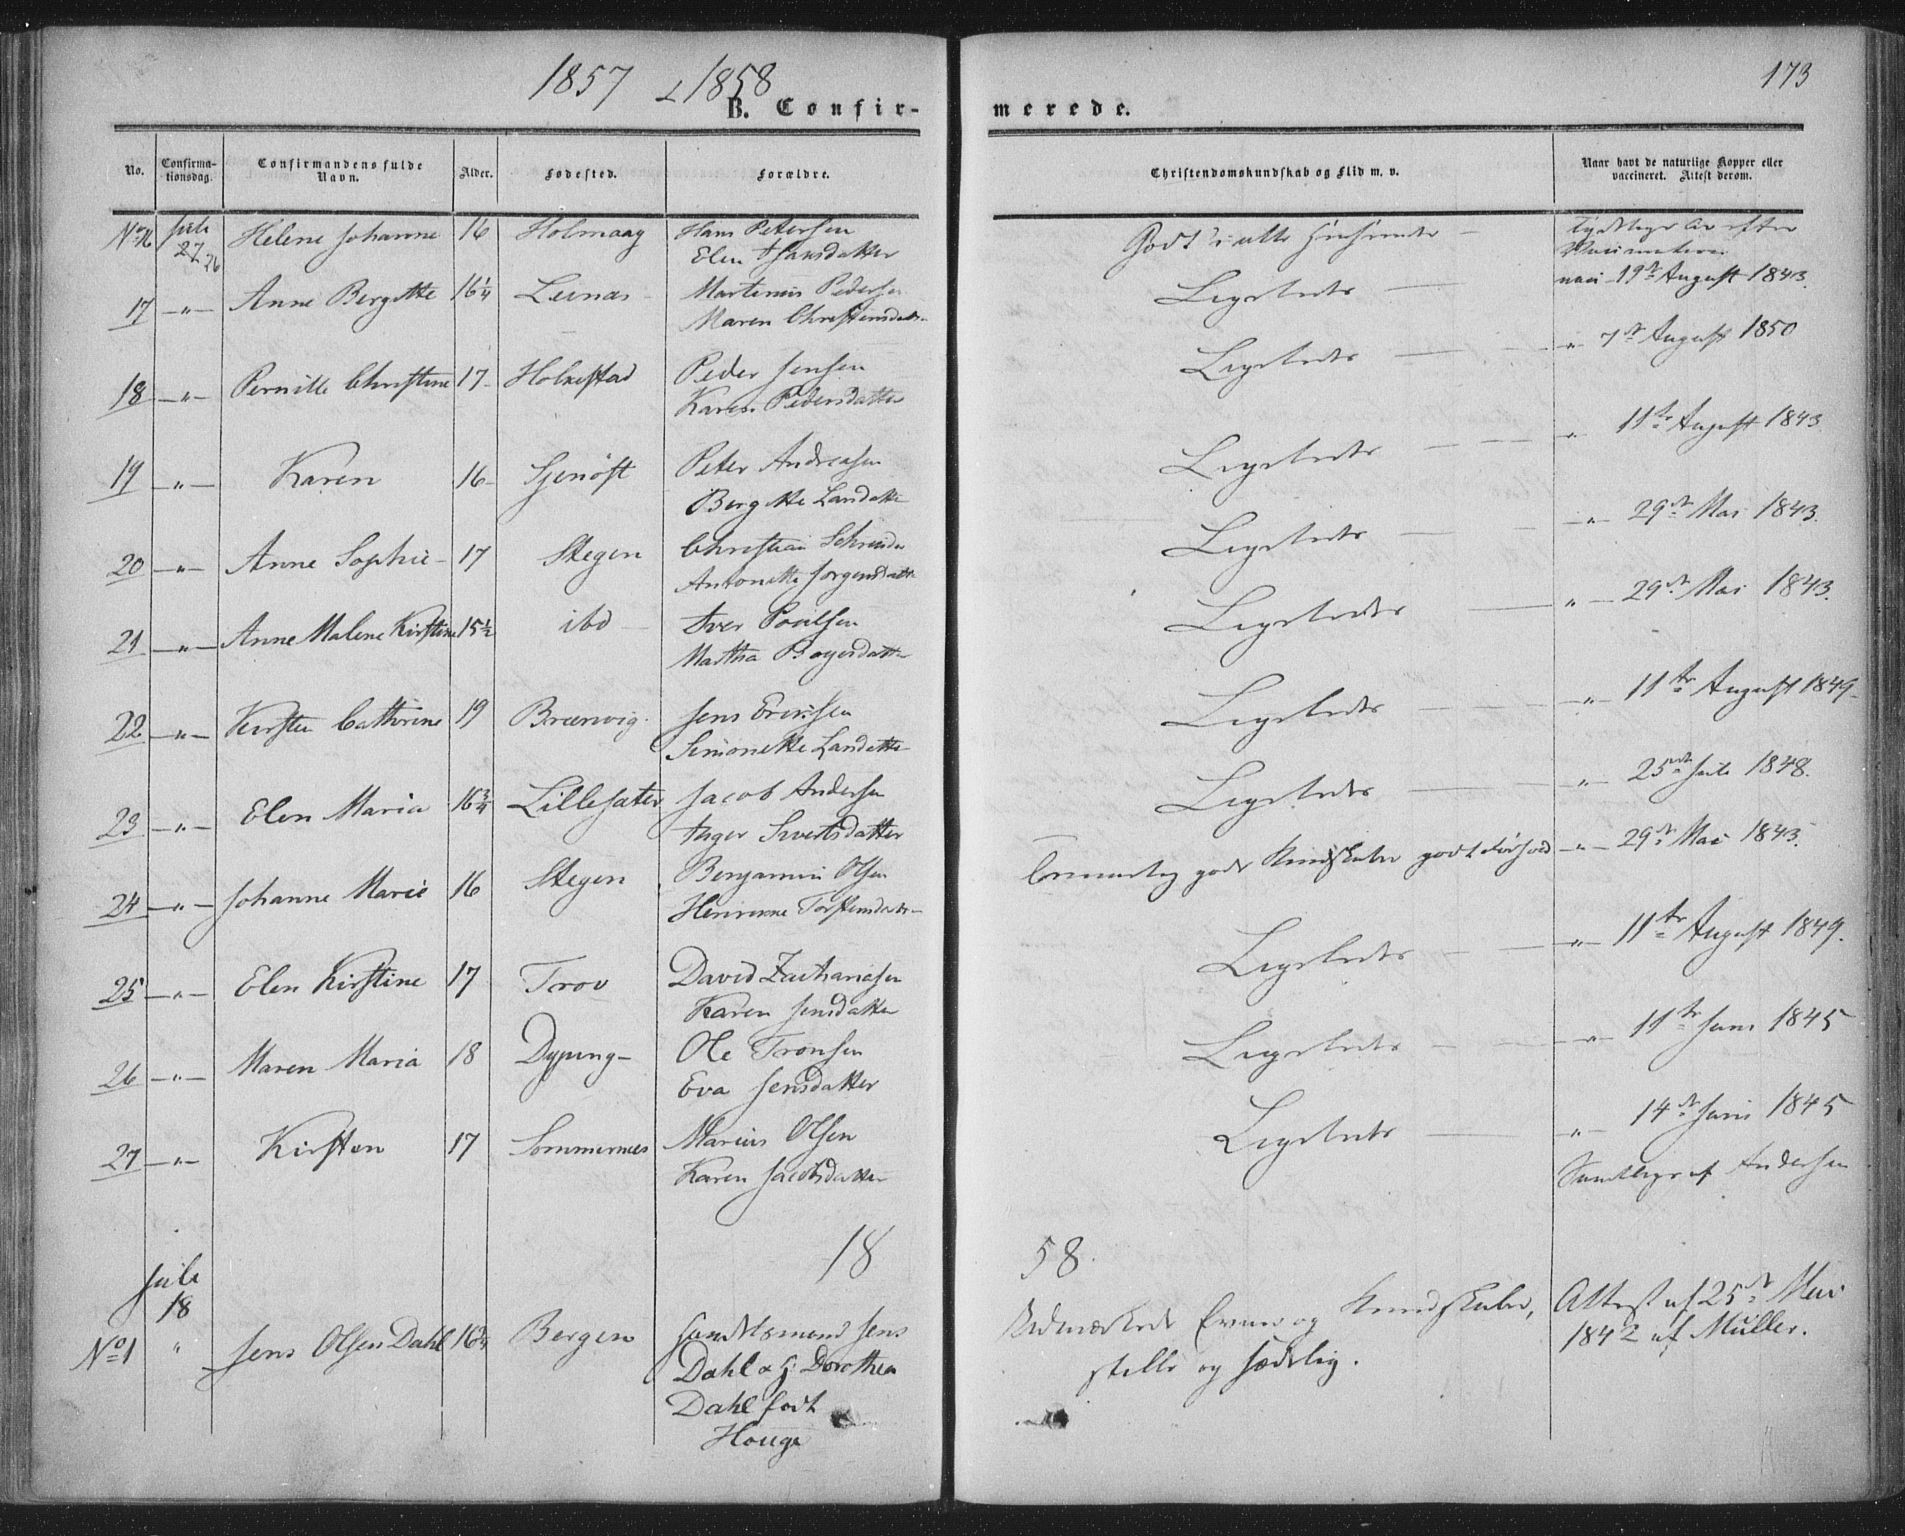 1857 & 1858
173
B. Confir-
merede.
No. Confirma-tionsdag. Confirmandens fulde Navn. Alder. Fødested. Forældre. Christendomskundskab og Flid m. v. Naar havt de naturlige Kopper eller vaccineret. Attest derom.
No 16 Juli 27 26 Helene Johanne 16 Holmaag Hans Petersen Godt i alle Tydelige Ar efter
Elen Hansdatter
17 -"- Anne Bergitte 16 1/4 Leinæs Martinus Pedersen Ligeledes vacc 19de August 1843.
Maren Christensdatr
18 -"- Pernille Christine 17 Holkestad Peder Jensen Ligeledes " 7de August 1850
Karen Pedersdatter
19 -"- Karen 16 Gjenøst Peter Andreasen Ligeledes " 11te August 1843
Bergitte Larsdatter
20 -"- Anne Sophie 17 Stegen Christian Schrøder Ligeledes " 29de Mai 1843.
Antonette Jørgensdatter
21 -"- Anne Malene Kirstine 15 1/2 ibd Iver Povelsen Ligeledes " 29de Mai 1843.
Martha Bøgersdatter
22 -"- Kirsten Cathrine 19 Brænvig Jens Eriksen Ligeledes " 11te August 1849
Simonette Larsdatter
23 -"- Elen Maria 16 3/4 Lillesæter Jacob Andersen Ligeledes " 25de Juli 1848.
Inger Sivertsdatter
24 -"- Johanne Marie 16 Stegen Benjamin Olsen gode Kundskaber godt Forhold " 29de Mai 1843.
Torstensdatr
25 -"- Elen Kirstine 17 Trov David Zachariasen Ligeledes " 11te August 1849.
Karen Jensdatter
26 -"- Maren Maria 18 Dyping Ole Tronsen Ligeledes " 11te Juni 1845
Eva Jensdatter
27 -"- Kirsten 17 Sommernæs Marius Olsen Ligeledes " 14de Juni 1845
Karen Jacobsdatter Samtlige af Andersen
18 58.
Juli
18
No 1 " Jens Olsen Dahl 16 3/4 Bergen Handelsmand Jens Udmærkede Evner og Kundskaber, Attest af 25de Mai
Dahl og H. Dorothea stille og sædelig. 1842 af Müller.
Dahl født
Houge